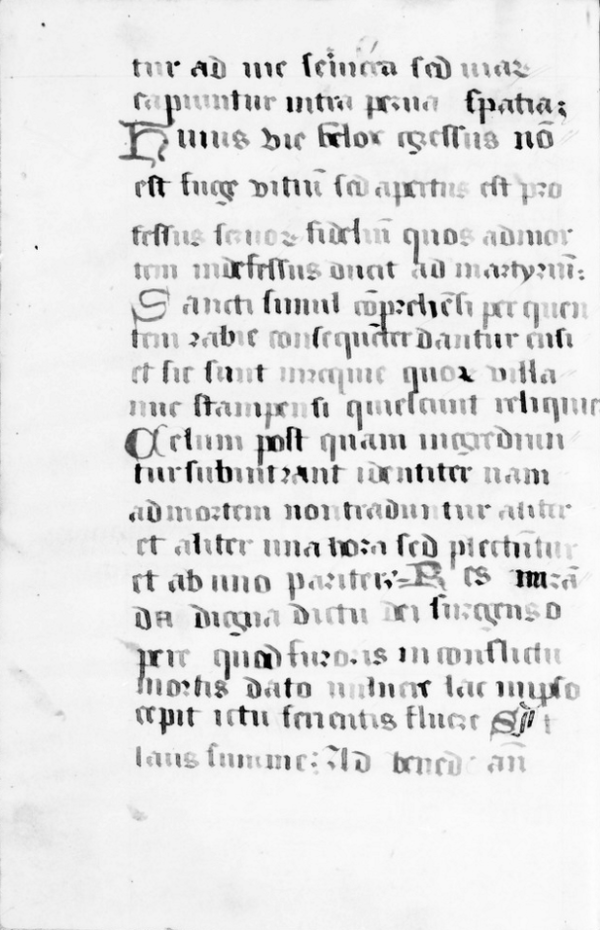 tur ad me sed mar
capiuntur intra spatia;
Huius vie egressus nō
est fuge vitiū sed apertus est pro
fessus fideliū quos admor
tem indefessus ducit ad martyriū:
Sancti simul cōprehēsi per quen
tem rabie consequēter dantur ensi
et sic sunt quor villa
nuc stampensi quiescunt reliquie
Celum post quam ingrediun
tur subintrant identitēr nam
ad mortem non traduntur aliter
et aliter una hora sed plectūtur
et ab uno pariter: Res mirā
da digna dictu dei surgens o
pere quod furoris in conflictu
mortis dato vulnere lac in ipso
cepit ictu ferientis fluere Sit
laus summe: Ad bened añ